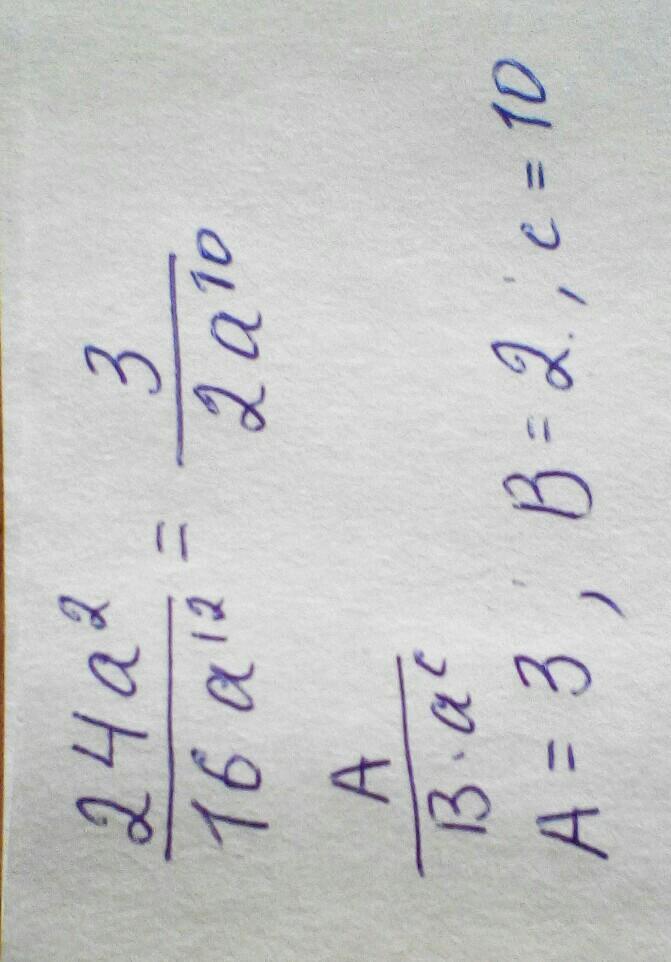 24a² / 16a¹² = 3 / 2a¹⁰
A / B·aᶜ
A = 3, B = 2, c = 10